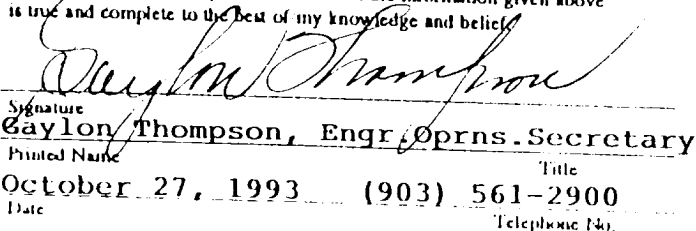 is true and complete to the best of my knowledge and belief.
Gaylon Thompson
Signature
Gaylon Thompson, Engr.Oprns.Secretary
Printed Name Title
October 27, 1993 (903) 561-2900
Date Telephone No.